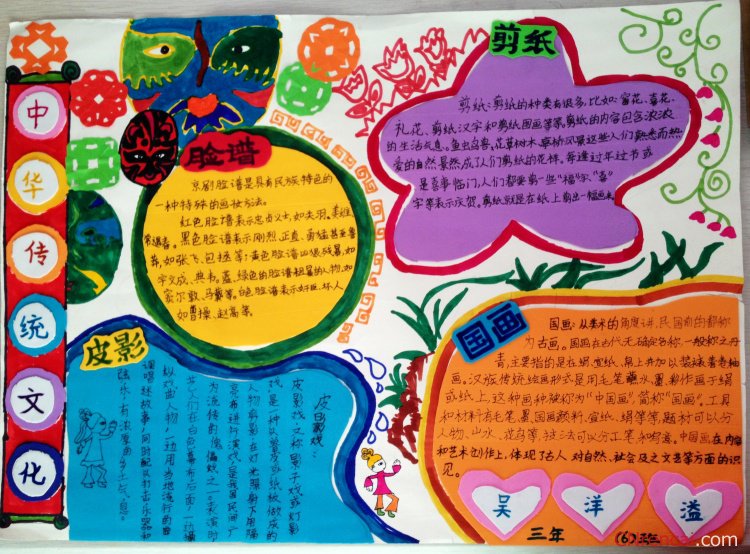 中
华
传
统
文
化
脸谱
京剧脸谱是具有民族特色的
一种特殊的画妆方法。
红色脸谱表示忠贞义士,如关羽、姜维
常遇春。黑色脸谱表示刚烈、正直、勇猛甚至鲁
莽,如张飞、包拯等;黄色脸谱凶狠残暴,如
宇文成、典韦。蓝、绿色的脸谱粗暴的人物,如
窦尔敦、马武等。白色脸谱表示奸臣、坏人,
如曹操、赵高等。
剪纸
剪纸:剪纸的种类有很多,比如:窗花、喜花、
礼花、剪纸汉字和剪纸国画等等,剪纸的内容包含浓浓
的生活气息,鱼虫鸟兽、花草树木、亭桥风景这些人们熟悉而热
爱的自然景然成了人们剪纸的花样。每逢过年过节或
是喜事临门,人们都要剪一些“福”字、“喜”
字等表示庆贺。剪纸就是在纸上剪出一幅画来
皮影
皮影戏:
皮影戏又称影子戏或灯影
戏是一种以兽皮或纸板做成的
人物剪影在灯光照射下用隔
亮布进行演戏,是我国民间广
为流传的傀儡戏之一。表演时
艺人们在白色幕布后面,一边操
纵戏曲人物,一边用当地流行的曲
调唱述故事,同时配以打击乐器和
弦乐,有浓厚的乡土气息。
国画
国画:从美术的角度讲,民国前的都称
为古画。国画在古代无确定名称,一般称之丹
青,主要指的是在绢、宣纸、帛上并加以装裱着卷轴
画。汉族传统绘画形式是用毛笔蘸水、墨、彩作画于绢
或纸上,这种画种被称为“中国画”,简称“国画”。工具
和材料有毛笔、墨、国画颜料、宣纸、绢等等,题材可以分
人物、山水、花鸟等,技法可以分工笔和写意,中国画在内容
和艺术创作上,体现了古人对自然、社会及之文艺等方面的认
识。
吴
洋
溢
三年 (6)班
.com